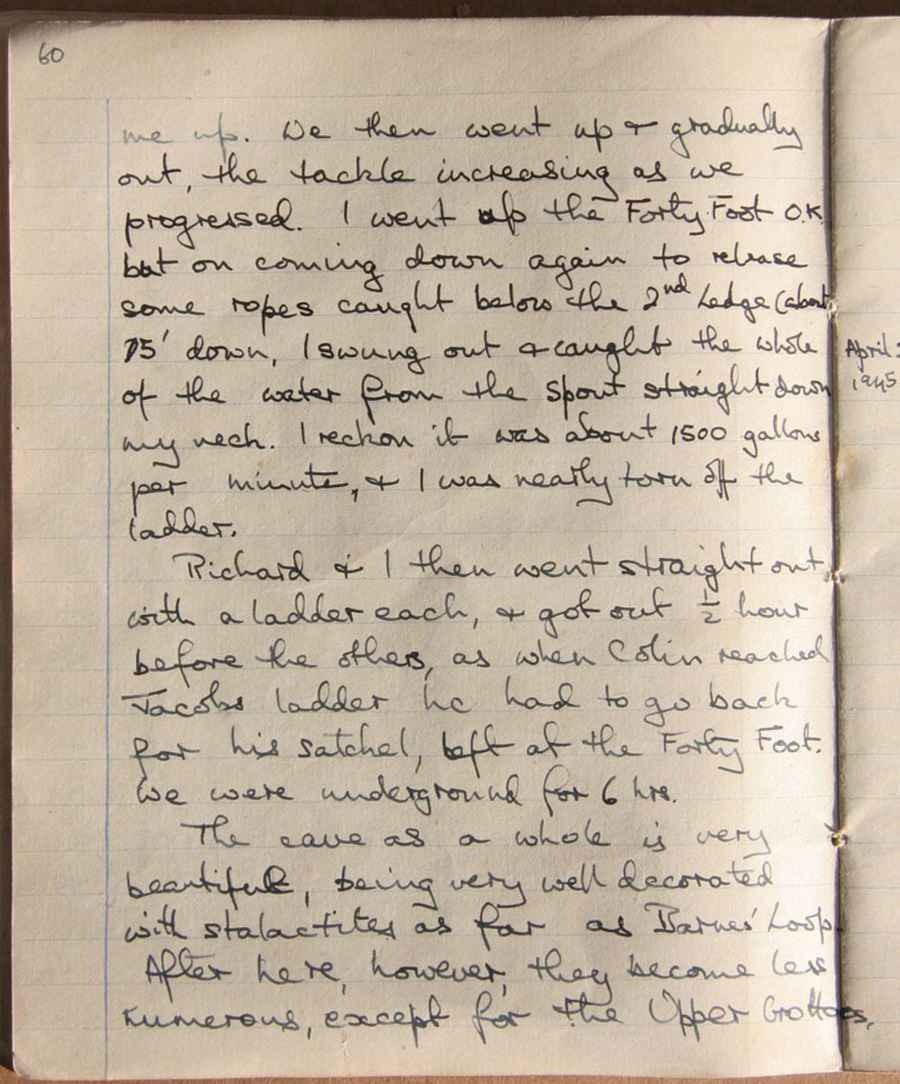 60
me up. We then went up & gradually
out, the tackle increasing as we
progressed. I went up the Forty Foot O.K.
but on coming down again to release
some ropes caught below the 2nd Ledge (about
15' down, I swung out & caught the whole
of the water from the spout straight down
my neck. I reckon it was about 1500 gallons
per minute, & I was nearly torn off the
ladder.
Richard & I then went straight out
with a ladder each, & got out ½ hour
before the others, as when Colin reached
Jacobs ladder he had to go back
for his satchel, left at the Forty Foot.
We were underground for 6 hrs.
The cave as a whole is very
beautiful, being very well decorated
with stalactites as far as Barnes' Loop.
After here, however, they become less
numerous, except for the Upper Grottoes.
April
1945